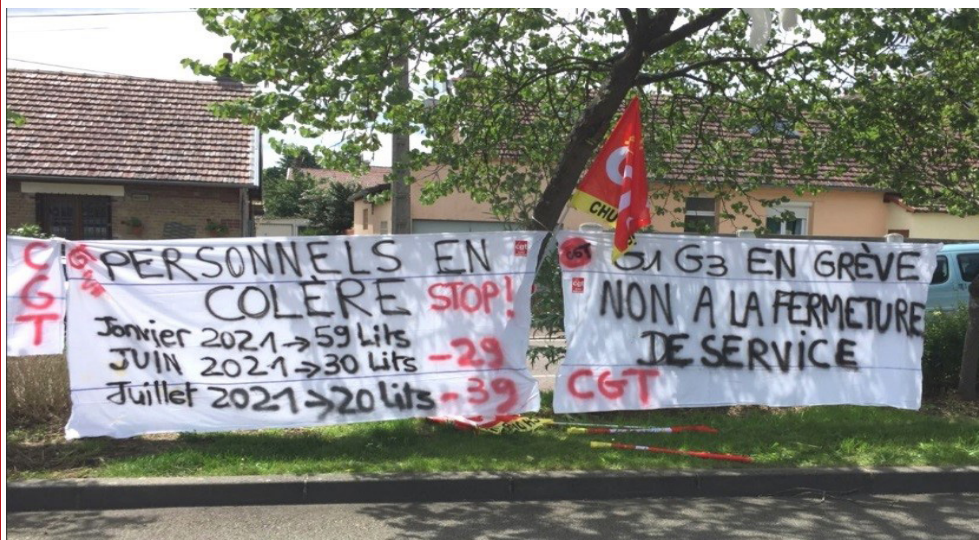 C
G
T
CGT
PERSONNELS EN
COLÈRE STOP!
Janvier 2021→59 Lits
JUIN 2021→30 Lits -29
Juillet 2021→20 lits -39
cgt
CHU
CGT
G1 G3 EN GRÈVE
NON A LA FERMETURE
DE SERVICE
CGT